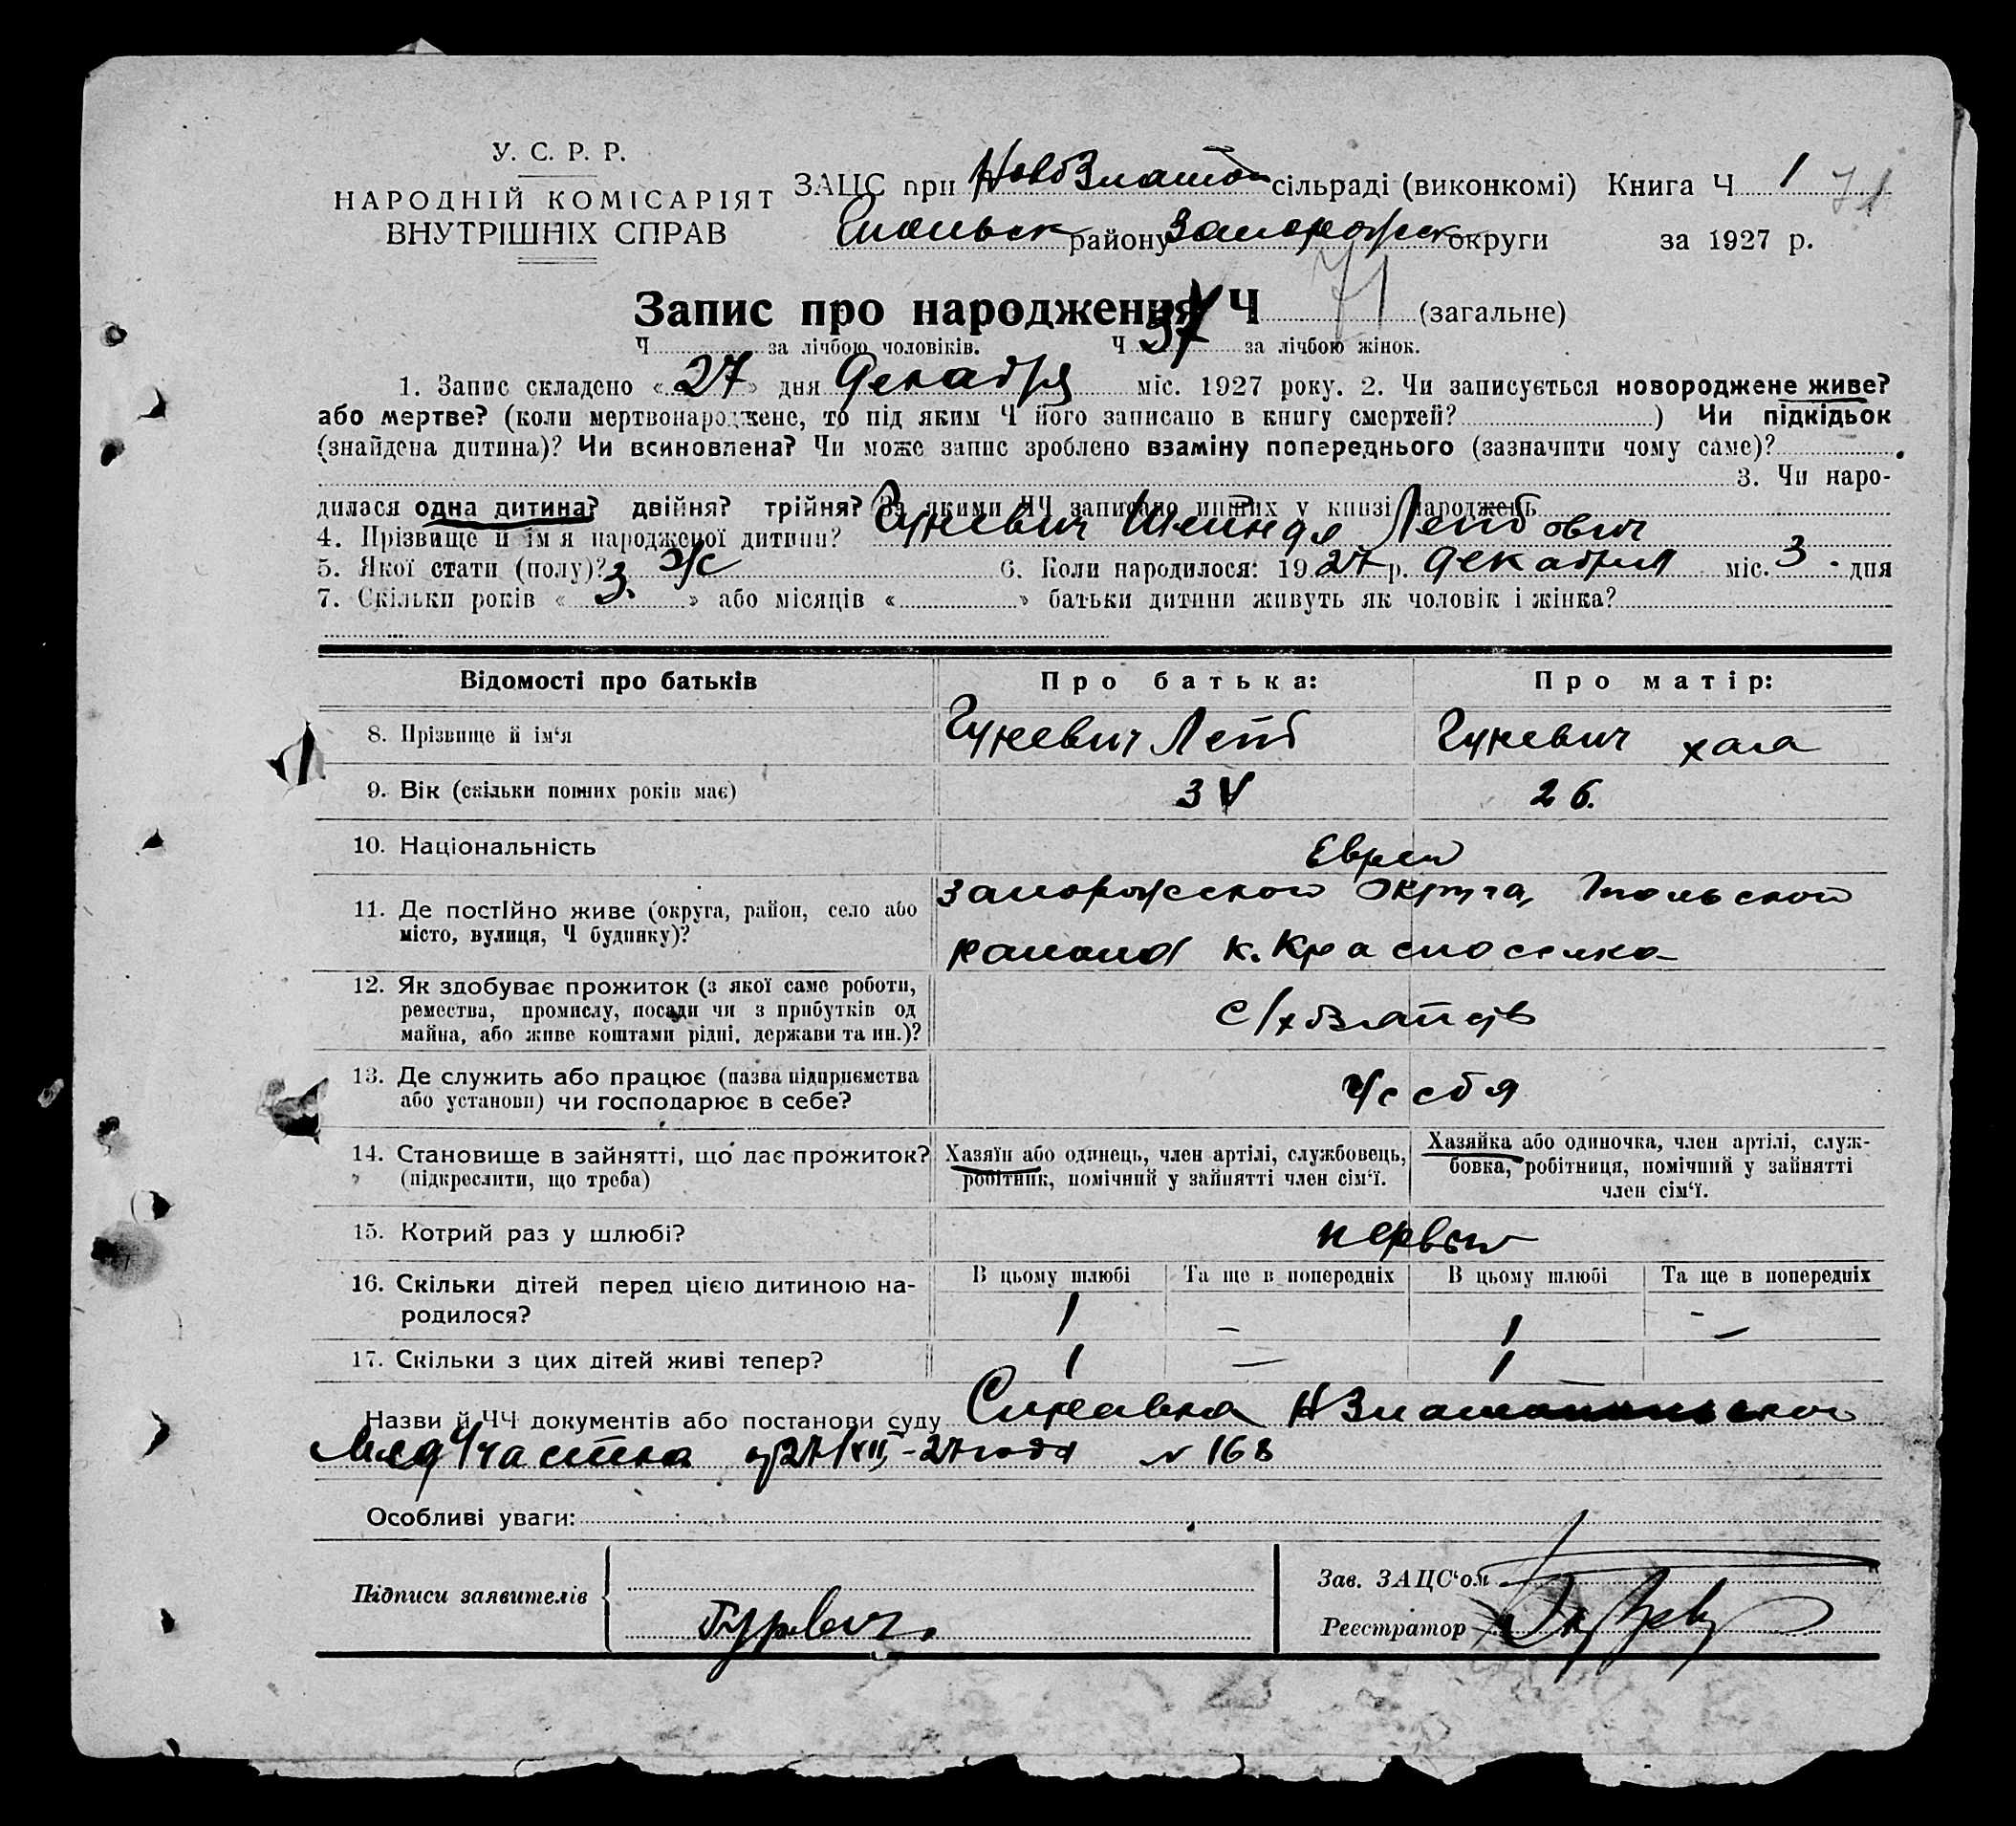 У. С. Р. Р.
НАРОДНІЙ КОМІСАРІЯТ
ВНУТРІШНІХ СПРАВ
ЗАЦС при НовоЗлатоп сільраді (виконкомі) Книга Ч 1 71
району Запорожск округи за 1927 р.
Запис про народження Ч 71 (загальне)
Ч за лічбою чоловіків. Ч 37 за лічбою жінок.
1. Запис складено « 27 » дня Декабря міс. 1927 року. 2. Чи записується новороджене живе?
або мертве? (коли мертвонароджене, то під яким Ч його записано в книгу смертей? ) Чи підкідьок
(знайдена дитина)? Чи всиновлена? Чи може запис зроблено взаміну попереднього (зазначити чому саме)?
3. Чи наро-
дилася одна дитина? двійня? трійня? За якими ЧЧ записано инших у книзі народжень
4. Прізвище й ім'я народженої дитини? Гуревич Шейндя Лейбович
5. Якої стати (полу)? ж 6. Коли народилося: 19 27 р. декабря міс. 3 дня
7. Скільки років « 3. » або місяців « » батьки дитини живуть як чоловік і жінка?
Відомості про батьків Про батька: Про матір:
8. Прізвище й ім'я Гуревич Лейб Гуревич хая
9. Вік (скільки повних років має) 34 26.
10. Національність Евреи
11. Де постійно живе (округа, район, село або
місто, вулиця, Ч будинку)?
Запорожского округа,
района к. Красноселка
12. Як здобуває прожиток (з якої саме роботи,
ремества, промислу, посади чи з прибутків од
майна, або живе коштами рідні, держави та ин.)?
13. Де служить або працює (назва підприємства
або установи) чи господарює в себе?
У себя
14. Становище в зайнятті, що дає прожиток?
(підкреслити, що треба)
Хазяїн або одинець, член артілі, службовець,
робітник, помічний у зайнятті член сім'ї.
Хазяйка або одиночка, член артілі, служ-
бовка, робітниця, помічний у зайнятті
член сім'ї.
15. Котрий раз у шлюбі? первый
В цьому шлюбі Та ще в попередніх В цьому шлюбі Та ще в попередніх
16. Скільки дітей перед цією дитиною на-
родилося?
1 – 1 –
17. Скільки з цих дітей живі тепер? 1 — 1
Назви й ЧЧ документів або постанови суду Справка
МедУчастка 27/XII-27 года № 168
Особливі уваги:
Підписи заявителів
Гурвич.
Зав. ЗАЦС'ом
Реєстратор